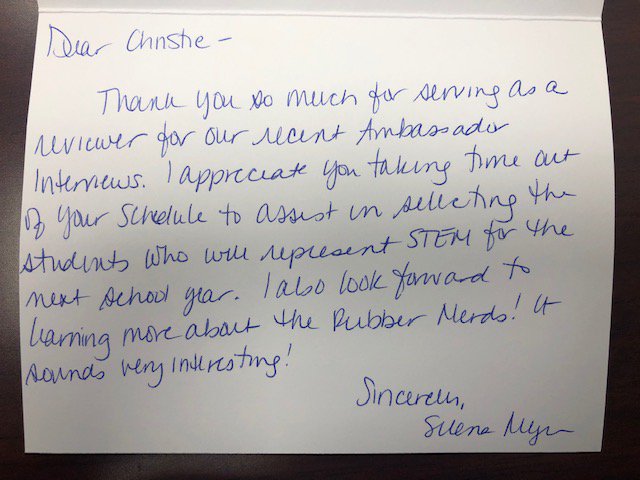 Dear Christie -
Thank you so much for serving as a
reviewer for our recent Ambassador
Interviews. I appreciate you taking time out
of your schedule to assist in selecting the
students who will represent STEM for the
next school year. I also look forward to
learning more about the Rubber Nerds! It
sounds very interesting!
Sincerely,